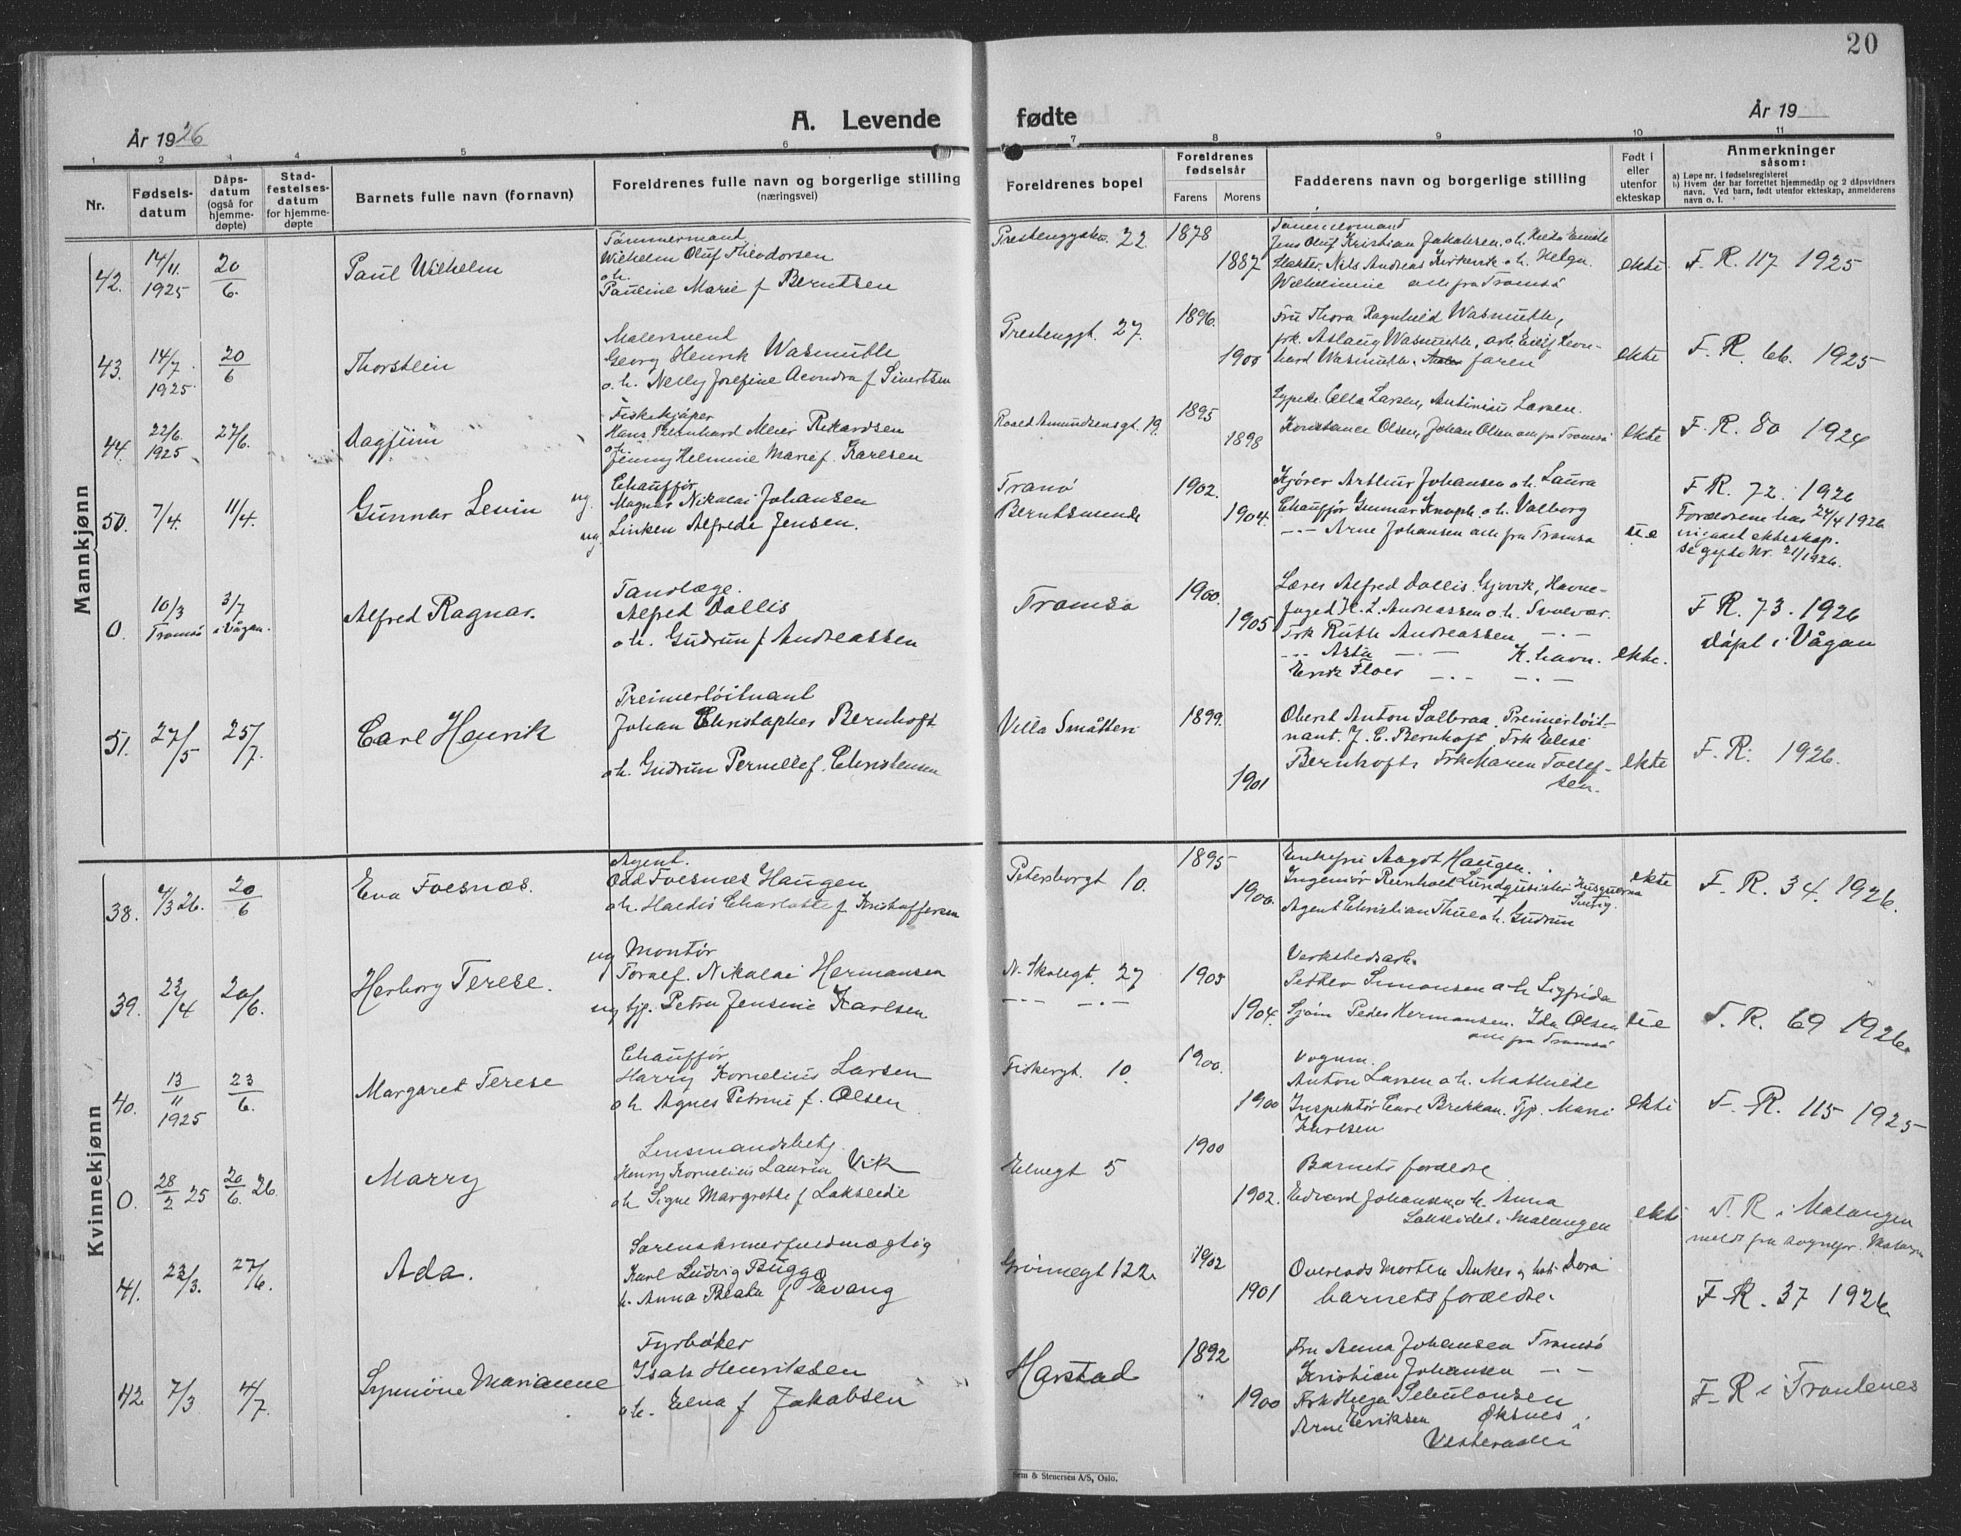 20
A. Levende fødte
År 1926
År 19
1 2 3 4 5 6 7 8 9 10 11
Nr.
Fødsels-
datum
Dåps-
datum
(også for
hjemme-
døpte)
Stad-
festelses-
datum
for hjemme-
døpte
Barnets fulle navn (fornavn)
Foreldrenes fulle navn og borgerlige stilling
(næringsvei)
Foreldrenes bopel
Foreldrenes
fødselsår
Farens Morens
Fadderens navn og borgerlige stilling
Født i
eller
utenfor
ekteskap
Anmerkninger
såsom:
a) Løpe nr. i fødselsregisteret
b) Hvem der har forrettet hjemmedåp og 2 dåpsvidners
navn. Ved barn, født utenfor ekteskap, anmelderens
navn o. l.
Mannkjønn
42. 14/11 1925 20/6. Paul Wilhelm
Tømmermand
Wilhelm Oluf Theodorsen
o.h.
Pauline Marie f Berntsen
22 1878 1887
Jens Oluf Kristian Jakobsen o.h.
Nils Andreas o.h. Helga
Wilhelmine alle fra Tromsø
ekte F. R. 117 1925
43. 14/7 1925 20/6 Thorstein
Malersvend
Georg Henrik Wasmuth
o.h. Nelly Josefine f Sivertsen
Prestenggt. 27. 1896. 1900
Fru Thora Ragnhild Wasmuth,
frk. Aslaug Wasmuth,
Wasmuth. faren
ekte F. R. 66. 1925
44. 22/6. 1925 27/6. Dagfinn
Fiskekjøper
Hans Bernhard Meier Rikardsen
o.
Jenny Helmine Marie f. Karlsen
Roald Amundsensgt. 19. 1895 1898
Ella Larsen, Antinius Larsen.
Konstance Olsen, Johan Olsen alle fra Tromsø
ekte F. R. 80 1924
50. 7/4. 11/4. Gunnar Levin
ug. Chauffør
Magnus Nikolai Johansen
ug. Linken Alfrede Jensen.
Tranø
1902. 1904.
Kjører Arthur Johansen o.h. Laura
Chauffør Gunnar Knoph o.h. Valborg
--- Arne Johansen alle fra Tromsø
u.e F R. 72. 1926
Forældrene har 24/4 1926
inngaaet ekteskap.
se gifte Nr. 21/1926.
0. 10/3 Tromsø 3/7 i Vågan. Alfred Ragnar.
Tanlæge.
Alfred Dallis
o.h. Gudrun f Andreassen
Tromsø 1900. 1905
Lærer Alfred Dallis. Gjøvik, Havne-
foged H. L. Andreassen o.h. Svolvær
Frk Ruth Andreassen - - -
--- Asta - - - K. havn.
Erik Floer - - - - - -
ekte. F R. 73. 1926
døpt i Vågan
51. 27/5 25/7. Carl Henrik
Premierløitnant
Johan Christopher Bernhoft
o.h. Gudrun Pernille f. Christensen
Villa Småtteri 1899. 1901
Oberst Anton Solbraa. Premierløit-
nant. J. C. Bernhoft, Frk Elise
Bernhoft, Frk Karen Tollef-
sen.
ekte F. R. 1926.
Kvinnekjønn
38. /3 26. 20/6 Eva Foesnæs.
Agent.
Odd Foesnæs Haugen
o.h. Haldis Charlotte f Kristoffersen
Petersborgt 10. 1895 1900.
Enkefru Aagot Haugen.
Ingeniør Reinholt Lundqvister
Agent Christian Thule o.h. Gudrun
ekte F. R. 34. 1926.
39. 23/4 20/6. Herborg Terese.
ug Montør
Toralf. Nikolai Hermansen
ug tjp. Petra Jensine Karlsen
N. Skolegt. 27 1903 1904.
--- ---
Verkstedsarb.
Petter Simonsen o.h. Sigfrida
Sjøm Peder Hermansen. Ida Olsen
alle fra Tromsø
u.e F. R. 69 1926.
40. 13/11 1925 23/6. Margaret Terese
Chauffør
Harry Kornelius Larsen
o.h. Agnes Petrine f. Olsen
Fiskergt. 10. 1900. 1900
Vognm.
Anton Larsen o.h. Mathilde
Inspektør Carl Brekkan. Tjp. Marie
Karlsen
ekte F. R. 115 1925
0. 28/2 25 20/6. 26. Marry
Lensmandsbetj.
Henry Kornelius Laurin Vik
o.h. Signe Margrethe f Lakseide
Elvegt 5 1900 1902.
Barnets forældre
Edvard Johansen o.h. Anna
Lakseidet i Malangen
ekte F. R i Malangen
meldt fra sognepr. Malangen
41. 23/3. 27/6. Ada.
Sorenskriverfuldmægtig
Karl Ludvig Bugge
h. Anna Beate f Evang
Grønnegt 122. 1902 1901
Overlods Morten Anker og hst. Dora
barnets forældre.
F. R. 37 1926
42 7/3 4/7. Synnøve Marianne
Fyrbøter
Isak Henriksen
o.h. Elna f Jakobsen
Harstad 1892 1900
Fru Anna Johansen Tromsø
Kristian Johansen - -
Frk Helga
Arne Eeriksen Øksnes i
Vesteraalen
F. R i Trondenes
Sem & Stenersen A/S, Oslo.